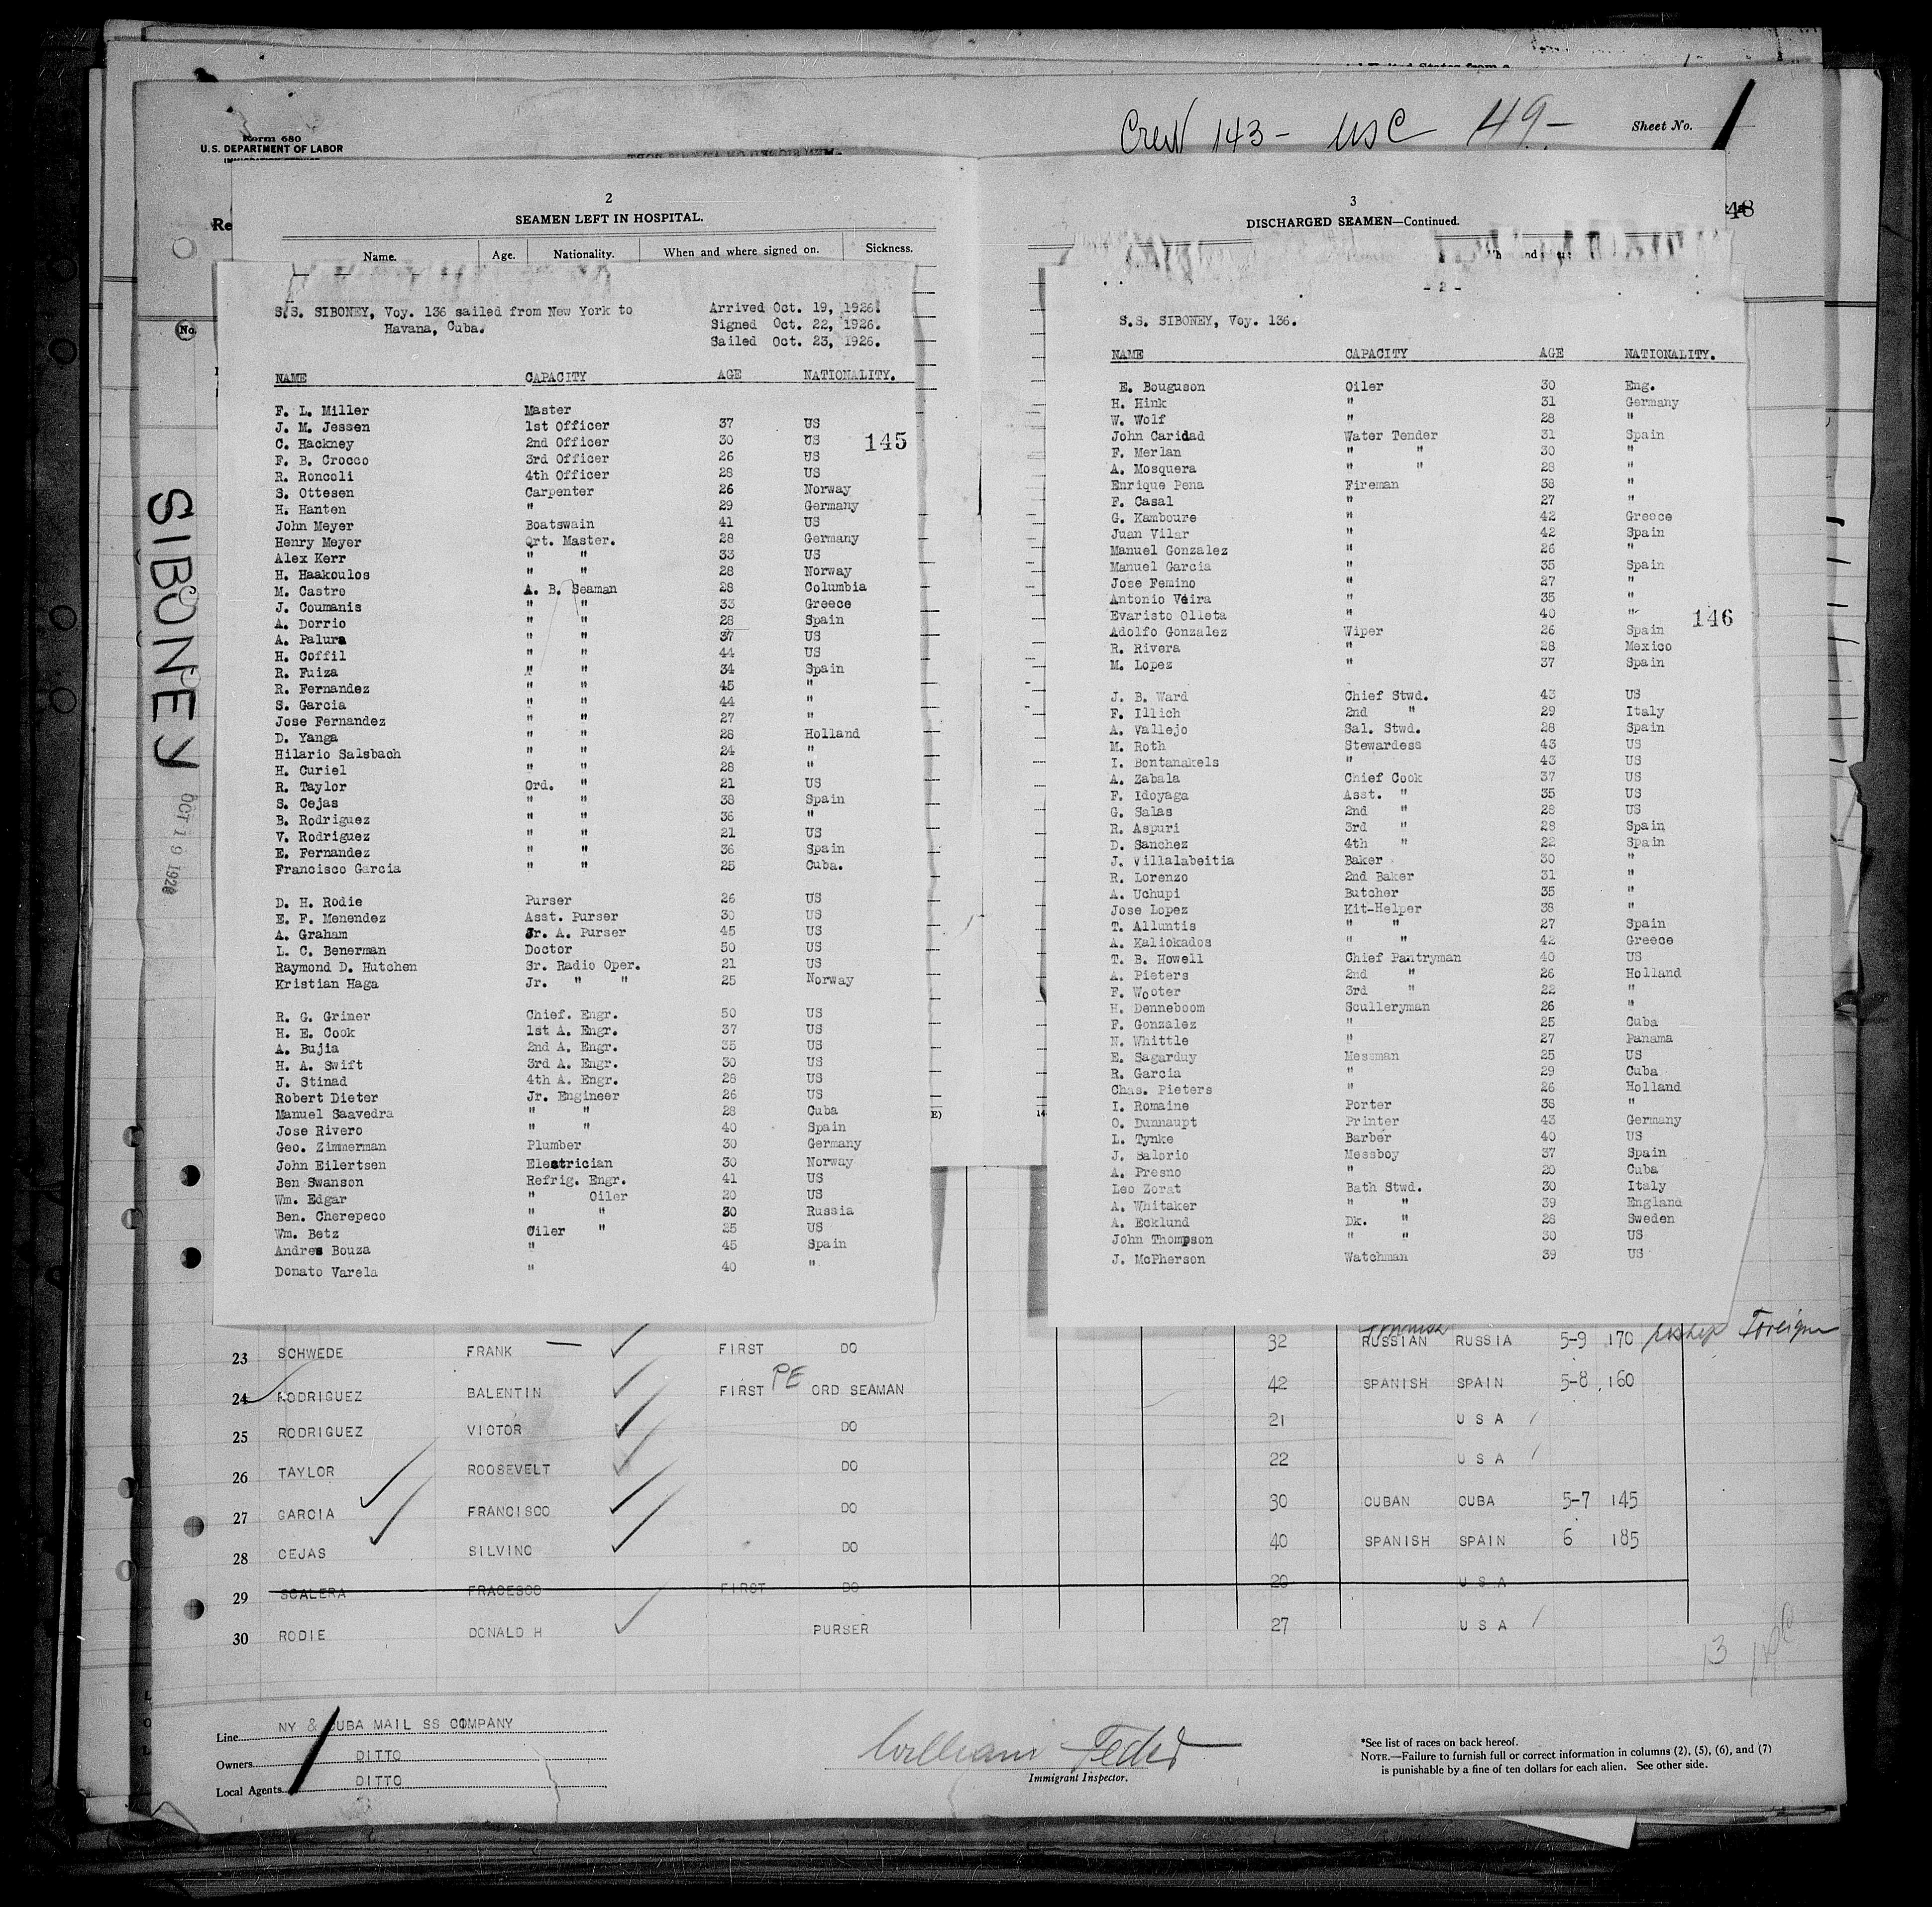 Form 680
U.S. DEPARTMENT OF LABOR
Crew 143 - USC 49 -
Sheet No. 1
48
SIBONEY
OCT 19 192
2
SEAMEN LEFT IN HOSPITAL.
Name. Age. Nationality. When and where signed on. Sickness.
No.
S.S. SIBONEY, Voy. 136 sailed from New York to Arrived Oct. 19, 1926.
Havana, Cuba. Signed Oct. 22, 1926.
Sailed Oct. 23, 1926.
NAME CAPACITY AGE NATIONALITY.
F. L. Miller Master
J. M. Jessen 1st Officer 37 US
C. Hackney 2nd Officer 30 US
145
F. B. Crocco 3rd Officer 26 US
R. Roncoli 4th Officer 28 US
S. Ottesen Carpenter 26 Norway
H. Hanten " 29 Germany
John Meyer Boatswain 41 US
Henry Meyer Qrt. Master. 28 Germany
Alex Kerr " " 33 US
H. Haakoulos " " 28 Norway
M. Castro A. B. Seaman 28 Columbia
J. Coumanis " " 33 Greece
A. Dorrio " " 28 Spain
A. Palura " " 37 US
H. Coffil " " 44 US
R. Fuiza " " 34 Spain
R. Fernandez " " 45 "
S. Garcia " " 44 "
Jose Fernandez " " 27 "
D. Yanga " " 28 Holland
Hilario Salsbach " " 24 "
H. Curiel " " 28 "
R. Taylor Ord. " 21 US
S. Cejas " " 38 Spain
B. Rodriguez " " 36 "
V. Rodriguez " " 21 US
E. Fernandez " " 36 Spain
Francisco Garcia " " 25 Cuba.
D. H. Rodie Purser 26 US
E. F. Menendez Asst. Purser 30 US
A. Graham Jr. A. Purser 45 US
L. C. Benerman Doctor 50 US
Raymond D. Hutchen Sr. Radio Oper. 21 US
Kristian Haga Jr. " " 25 Norway
R. G. Griner Chief. Engr. 50 US
H. E. Cook 1st A. Engr. 37 US
A. Bujia 2nd A. Engr. 35 US
H. A. Swift 3rd A. Engr. 30 US
J. Stinad 4th A. Engr. 28 US
Robert Dieter Jr. Engineer 26 US
Manuel Saavedra " " 28 Cuba
Jose Rivero " " 40 Spain
Geo. Zimmerman Plumber 30 Germany
John Eilertsen Electrician 30 Norway
Ben Swanson Refrig. Engr. 41 US
Wm. Edgar " Oiler 20 US
Ben. Cherepeco " " 30 Russia
Wm. Betz Oiler " 25 US
Andres Bouza " 45 Spain
Donato Varela " 40 "
3
DISCHARGED SEAMEN—Continued.
- 2 -
S.S. SIBONEY, Voy. 136.
NAME CAPACITY AGE NATIONALITY.
E. Bouguson Oiler 30 Eng.
H. Hink " 31 Germany
W. Wolf " 28 "
John Caridad Water Tender 31 Spain
F. Merlan " " 30 "
A. Mosquera " " 28 "
Enrique Pena Fireman 38 "
F. Casal " 27 "
G. Kamboure " 42 Greece
Juan Vilar " 42 Spain
Manuel Gonzalez " 26 "
Manuel Garcia " 35 Spain
Jose Femino " 27 "
Antonio Veira " 35 "
Evaristo Olleta " 40 "
146
Adolfo Gonzalez Wiper 26 Spain
R. Rivera " 28 Mexico
M. Lopez " 37 Spain
J. B. Ward Chief Stwd. 43 US
F. Illich 2nd " 29 Italy
A. Vallejo Sal. Stwd. 28 Spain
M. Roth Stewardess 43 US
I. Bontanakels " 43 US
A. Zabala Chief Cook 37 US
F. Idoyaga Asst. " 35 US
G. Salas 2nd " 28 US
R. Aspuri 3rd " 28 Spain
D. Sanchez 4th " 22 Spain
J. Villalabeitia Baker 30 "
R. Lorenzo 2nd Baker 31 "
A. Uchupi Butcher 35 "
Jose Lopez Kit-Helper 38 "
T. Alluntis " " 27 Spain
A. Kaliokados " " 42 Greece
T. B. Howell Chief Pantryman 40 US
A. Pieters 2nd " 26 Holland
F. Wooter 3rd " 22 "
H. Denneboom Sculleryman 26 "
F. Gonzalez " 25 Cuba
N. Whittle " 27 Panama
E. Sagarduy Messman 25 US
R. Garcia " 29 Cuba
Chas. Pieters " 26 Holland
I. Romaine Porter 38 "
O. Dunnaupt Printer 43 Germany
L. Tynke Barber 40 US
J. Salorio Messboy 37 Spain
A. Presno " 20 Cuba
Leo Zorat Bath Stwd. 30 Italy
A. Whitaker " " 39 England
A. Ecklund Dk. " 28 Sweden
John Thompson " " 30 US
J. McPherson Watchman 39 US
23 SCHWEDE FRANK — FIRST DO 32 RUSSIAN RUSSIA 5-9 170 Foreign
24 RODRIGUEZ BALENTIN FIRST PE ORD SEAMAN 42 SPANISH SPAIN 5-8 160
25 RODRIGUEZ VICTOR DO 21 U S A
26 TAYLOR ROOSEVELT DO 22 U S A
27 GARCIA FRANCISCO DO 30 CUBAN CUBA 5-7 145
28 CEJAS SILVINO DO 40 SPANISH SPAIN 6 185
29 SCALERA FRACESCO FIRST DO 20 U S A
30 RODIE DONALD H PURSER 27 U S A
13
Line NY & CUBA MAIL SS COMPANY
Owners DITTO
Local Agents DITTO
William Feder
Immigrant Inspector.
*See list of races on back hereof.
NOTE.—Failure to furnish full or correct information in columns (2), (5), (6), and (7)
is punishable by a fine of ten dollars for each alien. See other side.